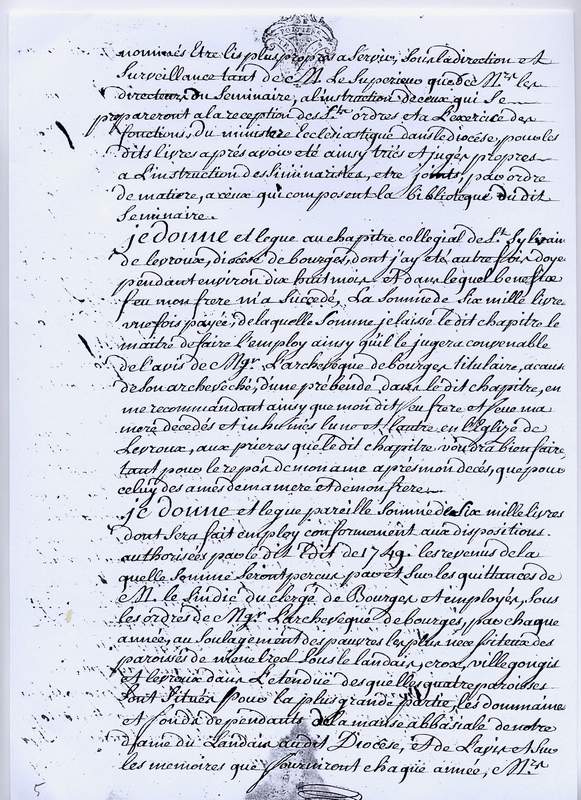 nommés Etre les plus propres a Servir, Sous la direction et
Surveillance tant de M. Le Superieur que de Mrs. les
directeurs du Seminaire, a l'instruction de ceux qui Se
prepareront a la reception des Sts. ordres et a L'exercice des
fonctions, du ministere Ecclesiastique dans le diocese, pour les
dits livres aprés avoir eté ainsy triés et Jugés propres
a L'instruction des Seminaristes, etre joints, par ordre
de matiere, a ceux qui composent la biblioteque du dit
Seminaire.
je donne et legue au chapitre collegial de St. Sylvain
de levroux, diocèse de bourges, dont j'ay eté autrefois doyen
pendant environ dix huit mois et dans lequel benefice
feu mon frere m'a Succedé, La Somme de Six mille livres
une fois payée, de laquelle Somme je laisse le dit chapitre le
maitre de faire l'employ ainsy qu'il le jugera convenable
de l'avis de Mgr. L'archevêque de bourges titulaire, a cause
de Son archevêché, d'une prébende dans le dit chapitre, en
me recommandant ainsy que mon dit feu frere et feue ma
mere decedés et inhumés l'un et l'autre en L'Eglize de
Levroux, aux prieres que le dit chapitre voudra bien faire
tant pour le repos de mon ame aprés mon decés, que pour
celuy des ames de ma mere et de mon frere.
je donne et legue pareille Somme de Six mille livres
dont Sera fait employ conformement aux dispositions
authorisées par le dit Edit de 1749. les revenus de la
quelle Somme Seront perçus par et Sur les quittances de
M. le Sindic du clergé de Bourges et employés, Sous
les ordres de Mgr. L'archevêque de bourges, par chaque
année, au Soulagement des pauvres les plus necessiteux des
paroisses de menetreol Sous le landais, croix, villegongis
et levroux dans L'etendue des quelles quatre paroisses
Sont Situés pour la plus grande partie, les doumaines
et fonds dependants de la manse abbasiale de notre
dame du Landais au dit Diocèse, et de L'avis et Sur
les memoires que fourniront chaque année, Mrs.
5